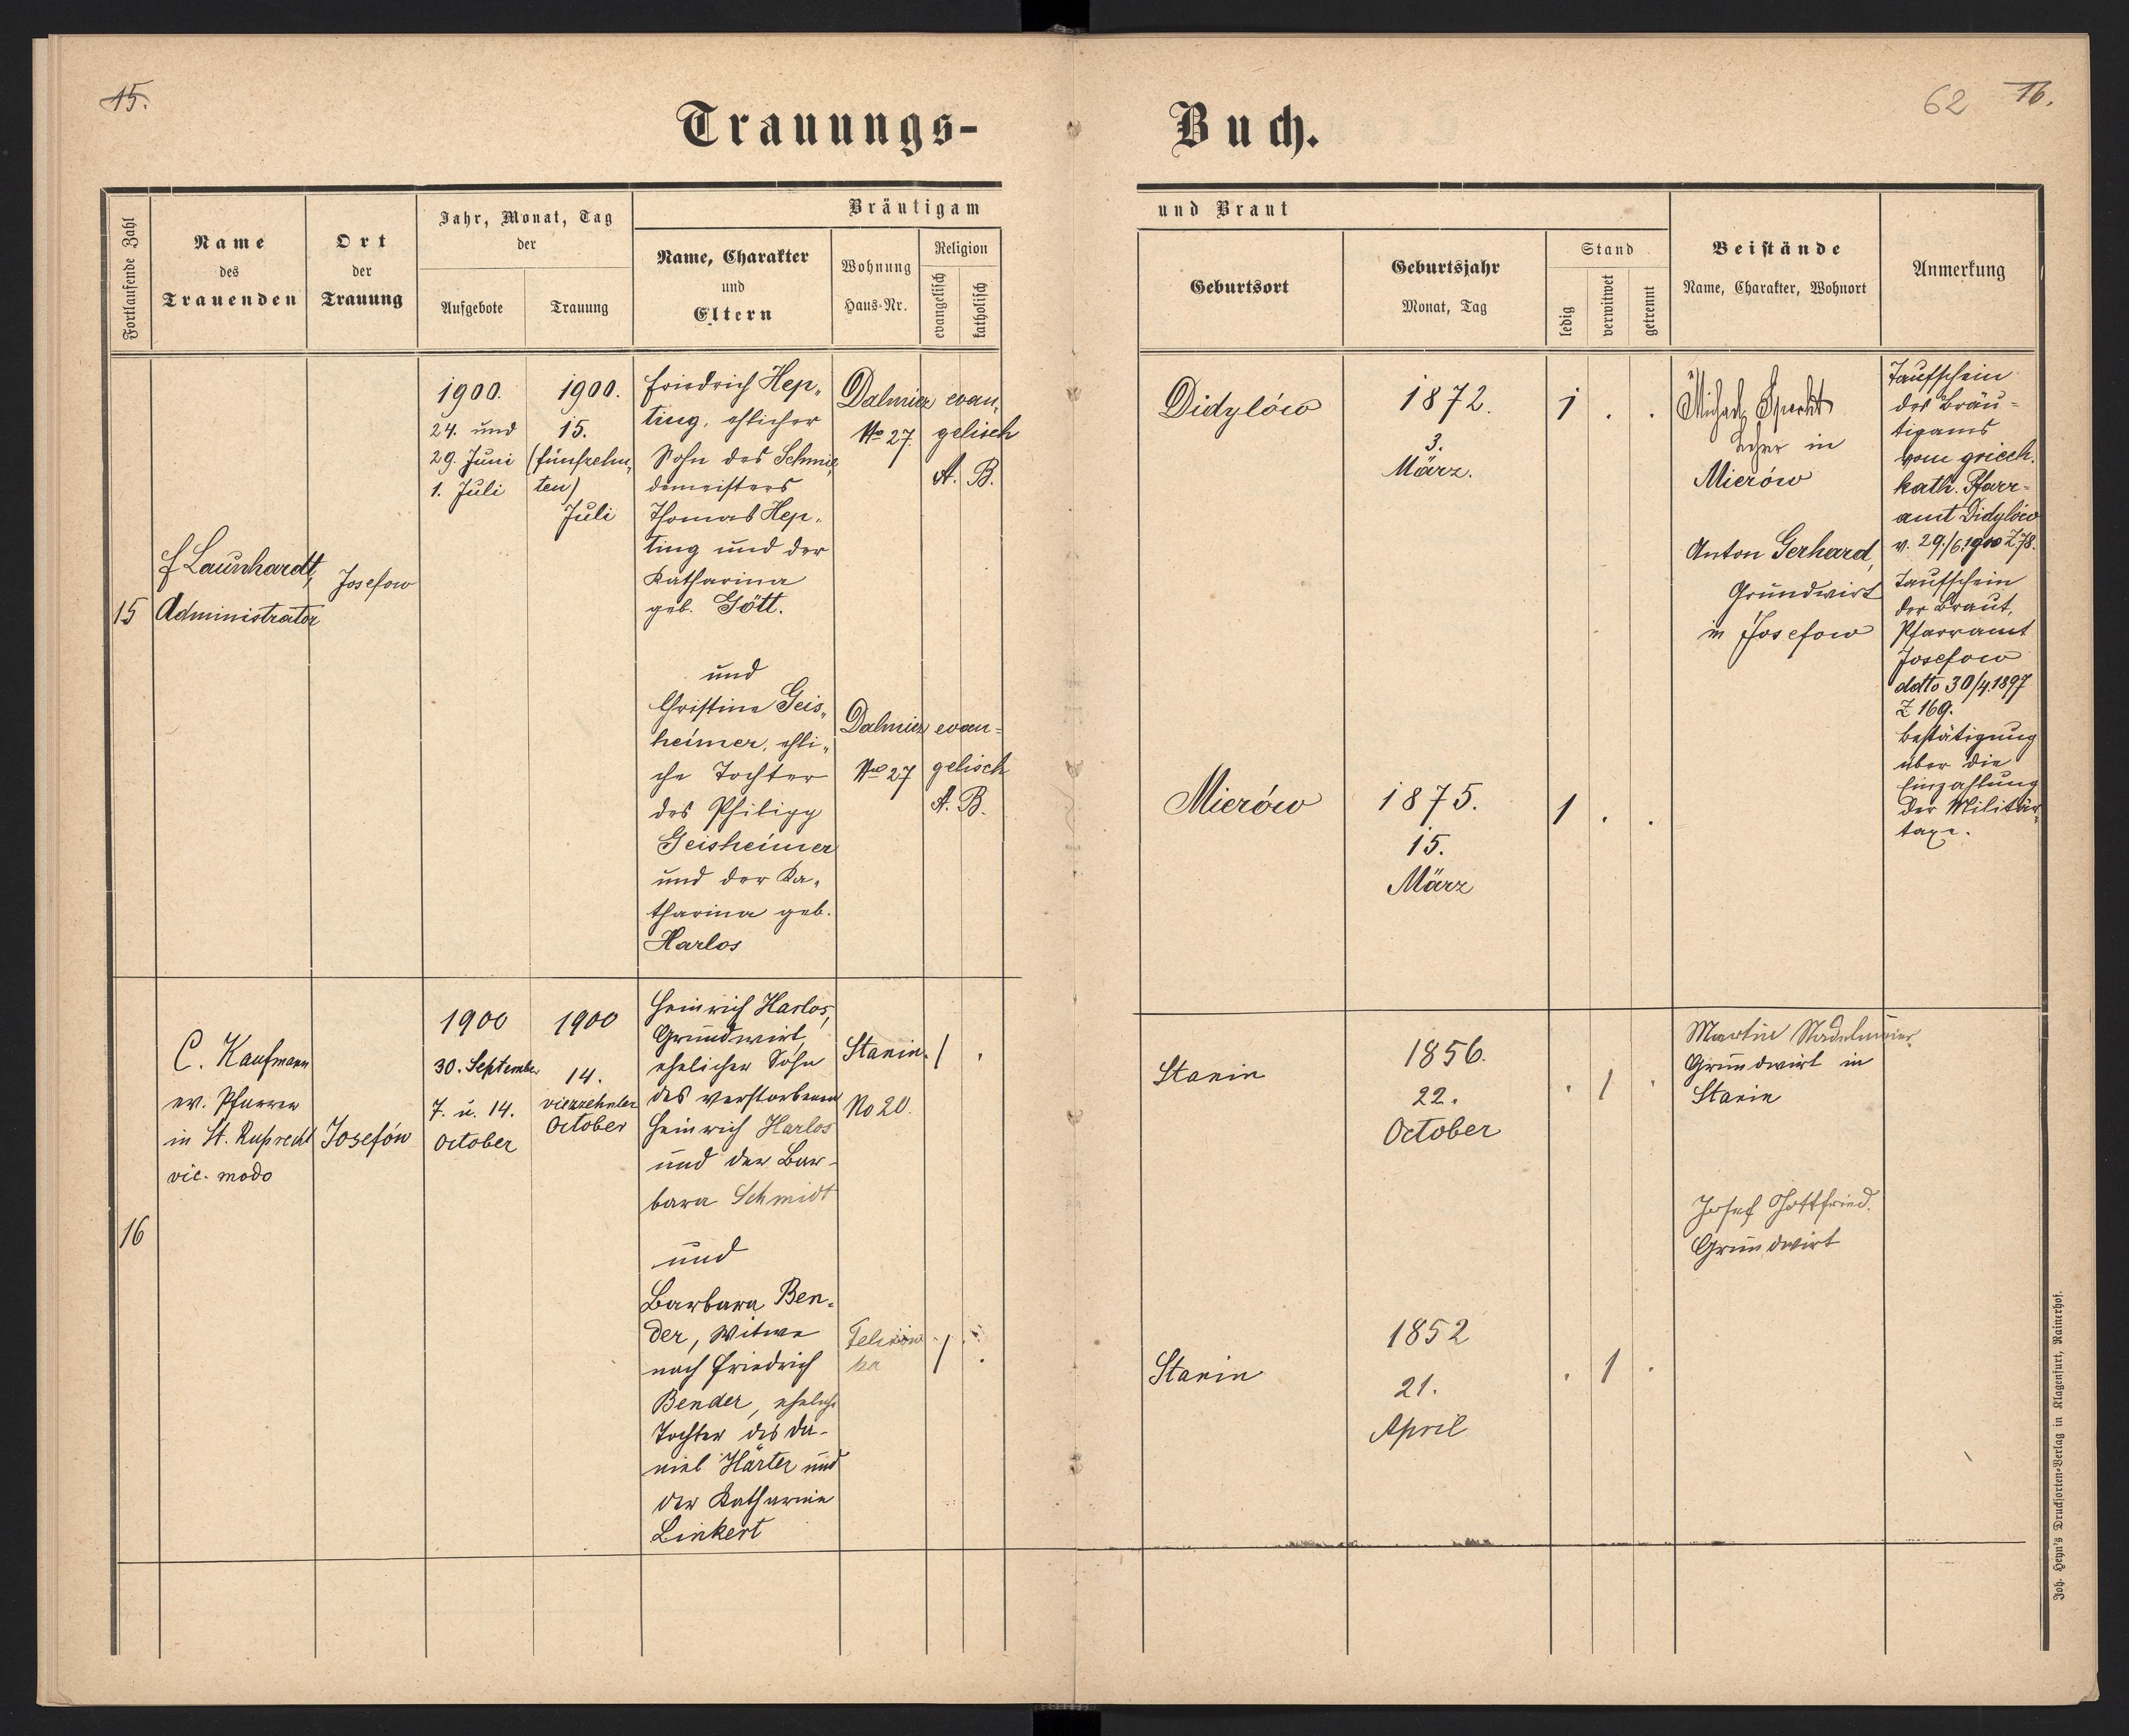 15.
62 16.
Trauungs-
Buch.
Fortlaufende Zahl
Name
des
Trauenden
Ort
der
Trauung
Jahr, Monat, Tag
der
Aufgebote
Trauung
Bräutigam
Name, Charakter
und
Eltern
Wohnung
Haus-Nr.
Religion
evangelisch
katholisch
und Braut
Geburtsort
Geburtsjahr
Monat, Tag
Stand
ledig
verwitwet
getrennt
Beistände
Name, Charakter, Wohnort
Anmerkung
15
f Launhardt,
Administrator
Josefow
1900.
24. und
29. Juni
1. Juli
1900.
15.
(fünfzehn„
ten)
Juli
Friedrich Hep„
ting, ehlicher
Sohn des Schmie„
demeisters
Thomas Hep„
ting und der
Katharina
geb. Gött.
und
Christine Geis„
heimer, ehli„
che Tochter
des Philipp
Geisheimer
und der Ka„
tharina geb.
Harlos
Dalnicz
No 27.
evan„
gelisch
A. B.
Dalnicz
No 27
evan=
gelisch
A. B.
Didylów
1872.
3.
März.
1 . .
Mierów
1875.
15.
März
1 . .
Michael
in
Mierów
Anton Gerhard,
Grundwirt
in Josefow
Taufschein
des Bräu=
tigams
vom griech.
kath. Pfarr=
amt Didylów
v. 29./6.1900 Z78.
Taufschein
der Braut,
Pfarramt
Josefow
ddto 30/4.1897
Z 169.
Bestätigung
über die
Einzahlung
der Militär„
taxe.
16
C. Kaufmann
ev. Pfarrer
in St. Ruprecht
vic. modo
Josefów
1900
30. September
7. u. 14.
October
1900
14.
vierzehnter
October
Heinrich Harlos,
Grundwirt,
ehelicher Sohn
des verstorbenen
Heinrich Harlos
und der Bar-
bara Schmidt
und
Barbara Ben-
der, Witwe
nach Friedrich
Bender, eheliche
Tochter des Da-
niel Härter und
der Katharina
Linkert
Stanin.
No 20.
1 .
ka
1 .
Stanin
1856.
22.
October
. 1 .
Stanin
1852
21.
April
. 1 .
Martin
Grundwirt in
Stanin
Josef Gottfried.
Grundwirt
Joh. Heyn's Drucksorten-Verlag in Klagenfurt, Rainerhof.